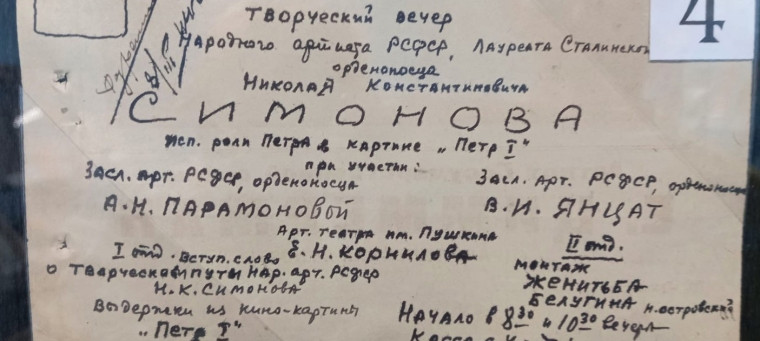 4
Творческий вечер
Народного артиста РСФСР, Лауреата Сталинской
орденоносца
Николая Константиновича
СИМОНОВА
исп. роли Петра в картине „Петр I"
при участии:
Засл. арт. РСФСР, орденоносца
А.Н. ПАРАМОНОВОЙ
Засл. арт. РСФСР, орденоносца
В.И. ЯНЦАТ
Арт. театра им. Пушкина
I отд. Вступ. слово Е.Н. Корнилова
о творческом пути нар. арт. РСФСР
Н.К. Симонова
Выдержки из кино-картины
„Петр I"
II отд.
монтаж
ЖЕНИТЬБА
БЕЛУГИНА Н. Островский
Начало в 8 30 и 10 30 вечера
Касса с